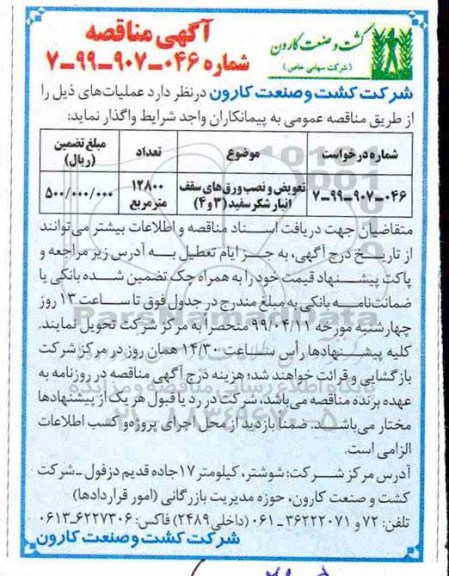 آگهی مناقصه
شماره ۰۴۶-۹۰۷-۹۹-۷
کشت و صنعت کارون
(شرکت سهامی خاص)
شرکت کشت و صنعت کارون در نظر دارد عملیات‌های ذیل را
از طریق مناقصه عمومی به پیمانکاران واجد شرایط واگذار نماید:
شماره درخواست موضوع تعداد مبلغ تضمین (ریال)
۰۴۶-۹۰۷-۹۹-۷ تعویض و نصب ورق‌های سقف انبار شکر سفید (۳ و ۴) ۱۲۸۰۰ مترمربع ۵۰۰/۰۰۰/۰۰۰
متقاضیان جهت دریافت اسناد مناقصه و اطلاعات بیشتر می‌توانند
از تاریخ درج آگهی، به جز ایام تعطیل به آدرس زیر مراجعه و
پاکت پیشنهاد قیمت خود را به همراه چک تضمین شده بانکی یا
ضمانت‌نامه بانکی به مبلغ مندرج در جدول فوق تا ساعت ۱۳ روز
چهارشنبه مورخه ۹۹/۰۴/۱۱ منحصراً به مرکز شرکت تحویل نمایند.
کلیه پیشنهادها رأس ساعت ۱۴/۳۰ همان روز در مرکز شرکت
بازگشایی و قرائت خواهند شد؛ هزینه درج آگهی مناقصه در روزنامه به
عهده برنده مناقصه می‌باشد، شرکت در رد یا قبول هر یک از پیشنهادها
مختار می‌باشد. ضمناً بازدید از محل اجرای پروژه و کسب اطلاعات
الزامی است.
آدرس مرکز شرکت: شوشتر، کیلومتر ۱۷ جاده قدیم دزفول - شرکت
کشت و صنعت کارون، حوزه مدیریت بازرگانی (امور قراردادها)
تلفن: ۷۲ و ۳۶۲۲۲۰۷۱-۰۶۱ (داخلی ۲۴۸۹) فاکس: ۶۲۲۷۳۰۶-۰۶۱۳
شرکت کشت و صنعت کارون
ParsNamadData